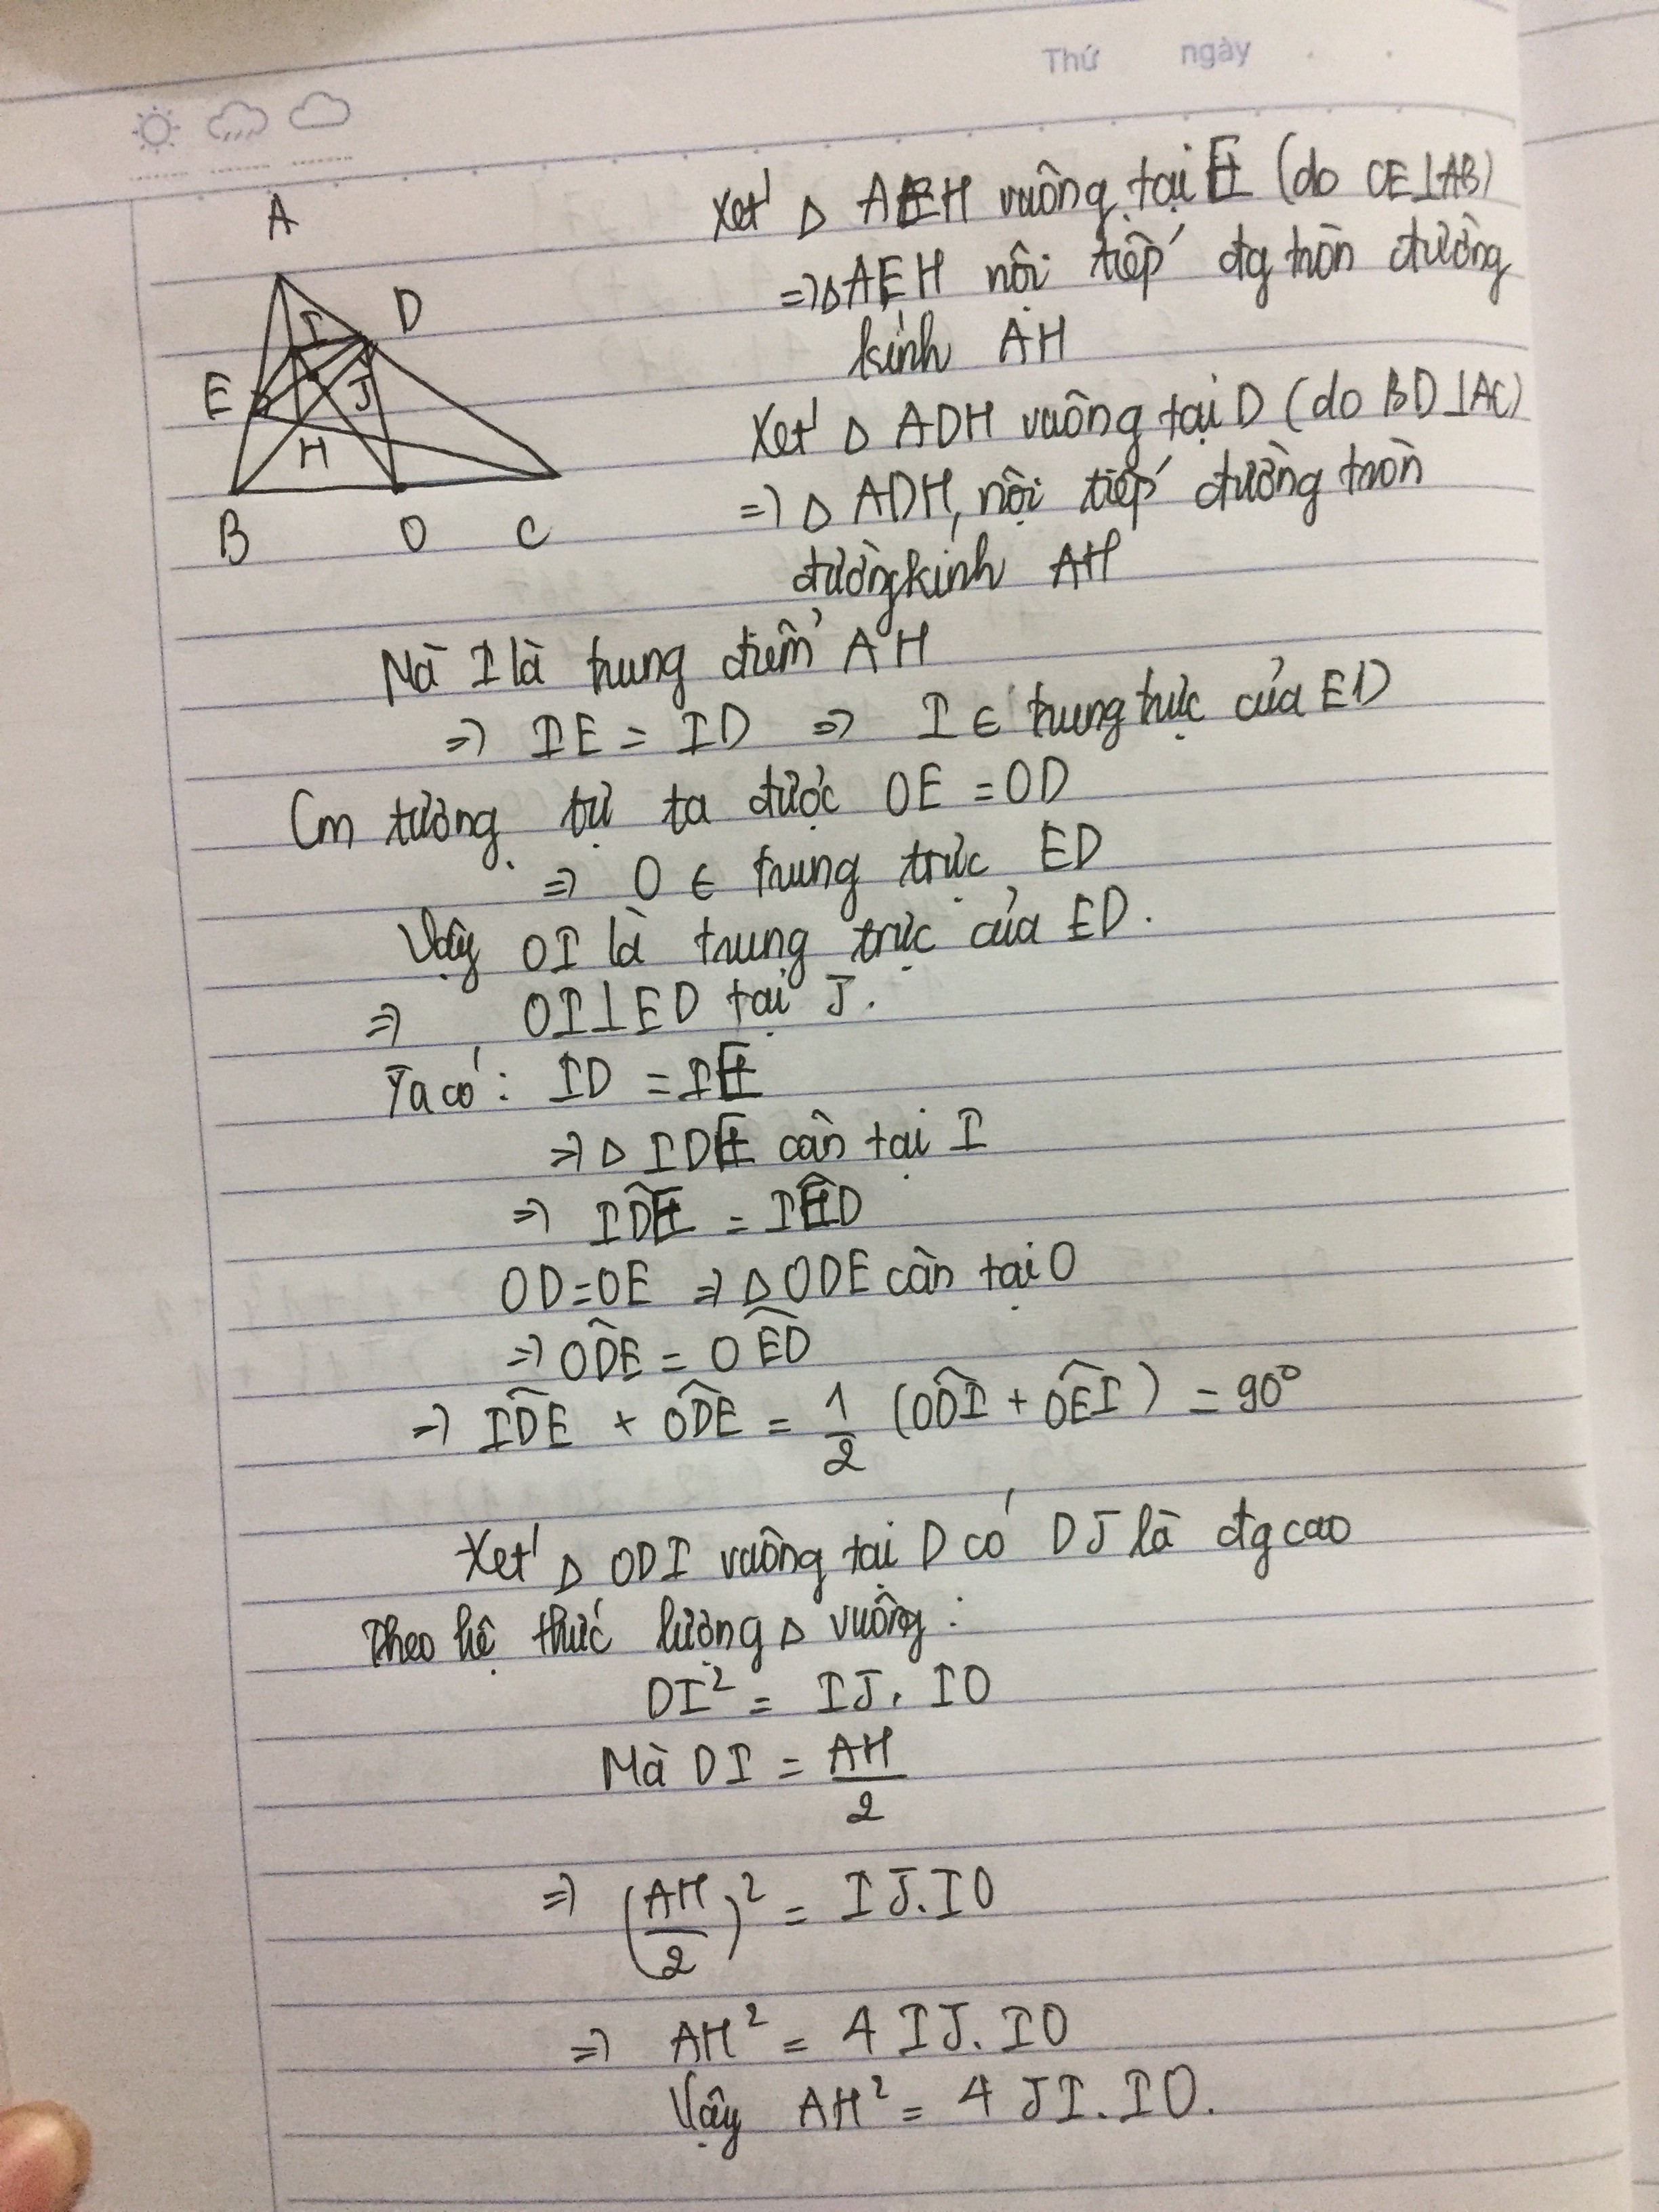 Thứ ngày
A
D
I
E
J
H
B
O
C
Xét △ AEH vuông tại E (do CE⊥AB)
=> △AEH nội tiếp đg tròn đường
kính AH
Xét △ ADH vuông tại D (do BD⊥AC)
=> △ ADH, nội tiếp đường tròn
đường kính AH
Mà I là trung điểm AH
=> IE = ID => I ∈ trung trực của ED
Cm tương tự ta được OE = OD
=> O ∈ trung trực ED
Vậy OI là trung trực của ED.
=> OI⊥ED tại J.
Ta có: ID = IE
=> △ IDE cân tại I
=> ID̂E = IÊD
OD=OE => △ ODE cân tại O
=> OD̂E = OÊD
=> ID̂E + OD̂E = 1/2 (OD̂I + OÊI) = 90°
Xét △ ODI vuông tại D có DJ là đg cao
Theo hệ thức lượng △ vuông:
DI² = IJ. IO
Mà DI = AH/2
=> (AH/2)² = IJ.IO
=> AH² = 4 IJ. IO
Vậy AH² = 4 JI. IO.